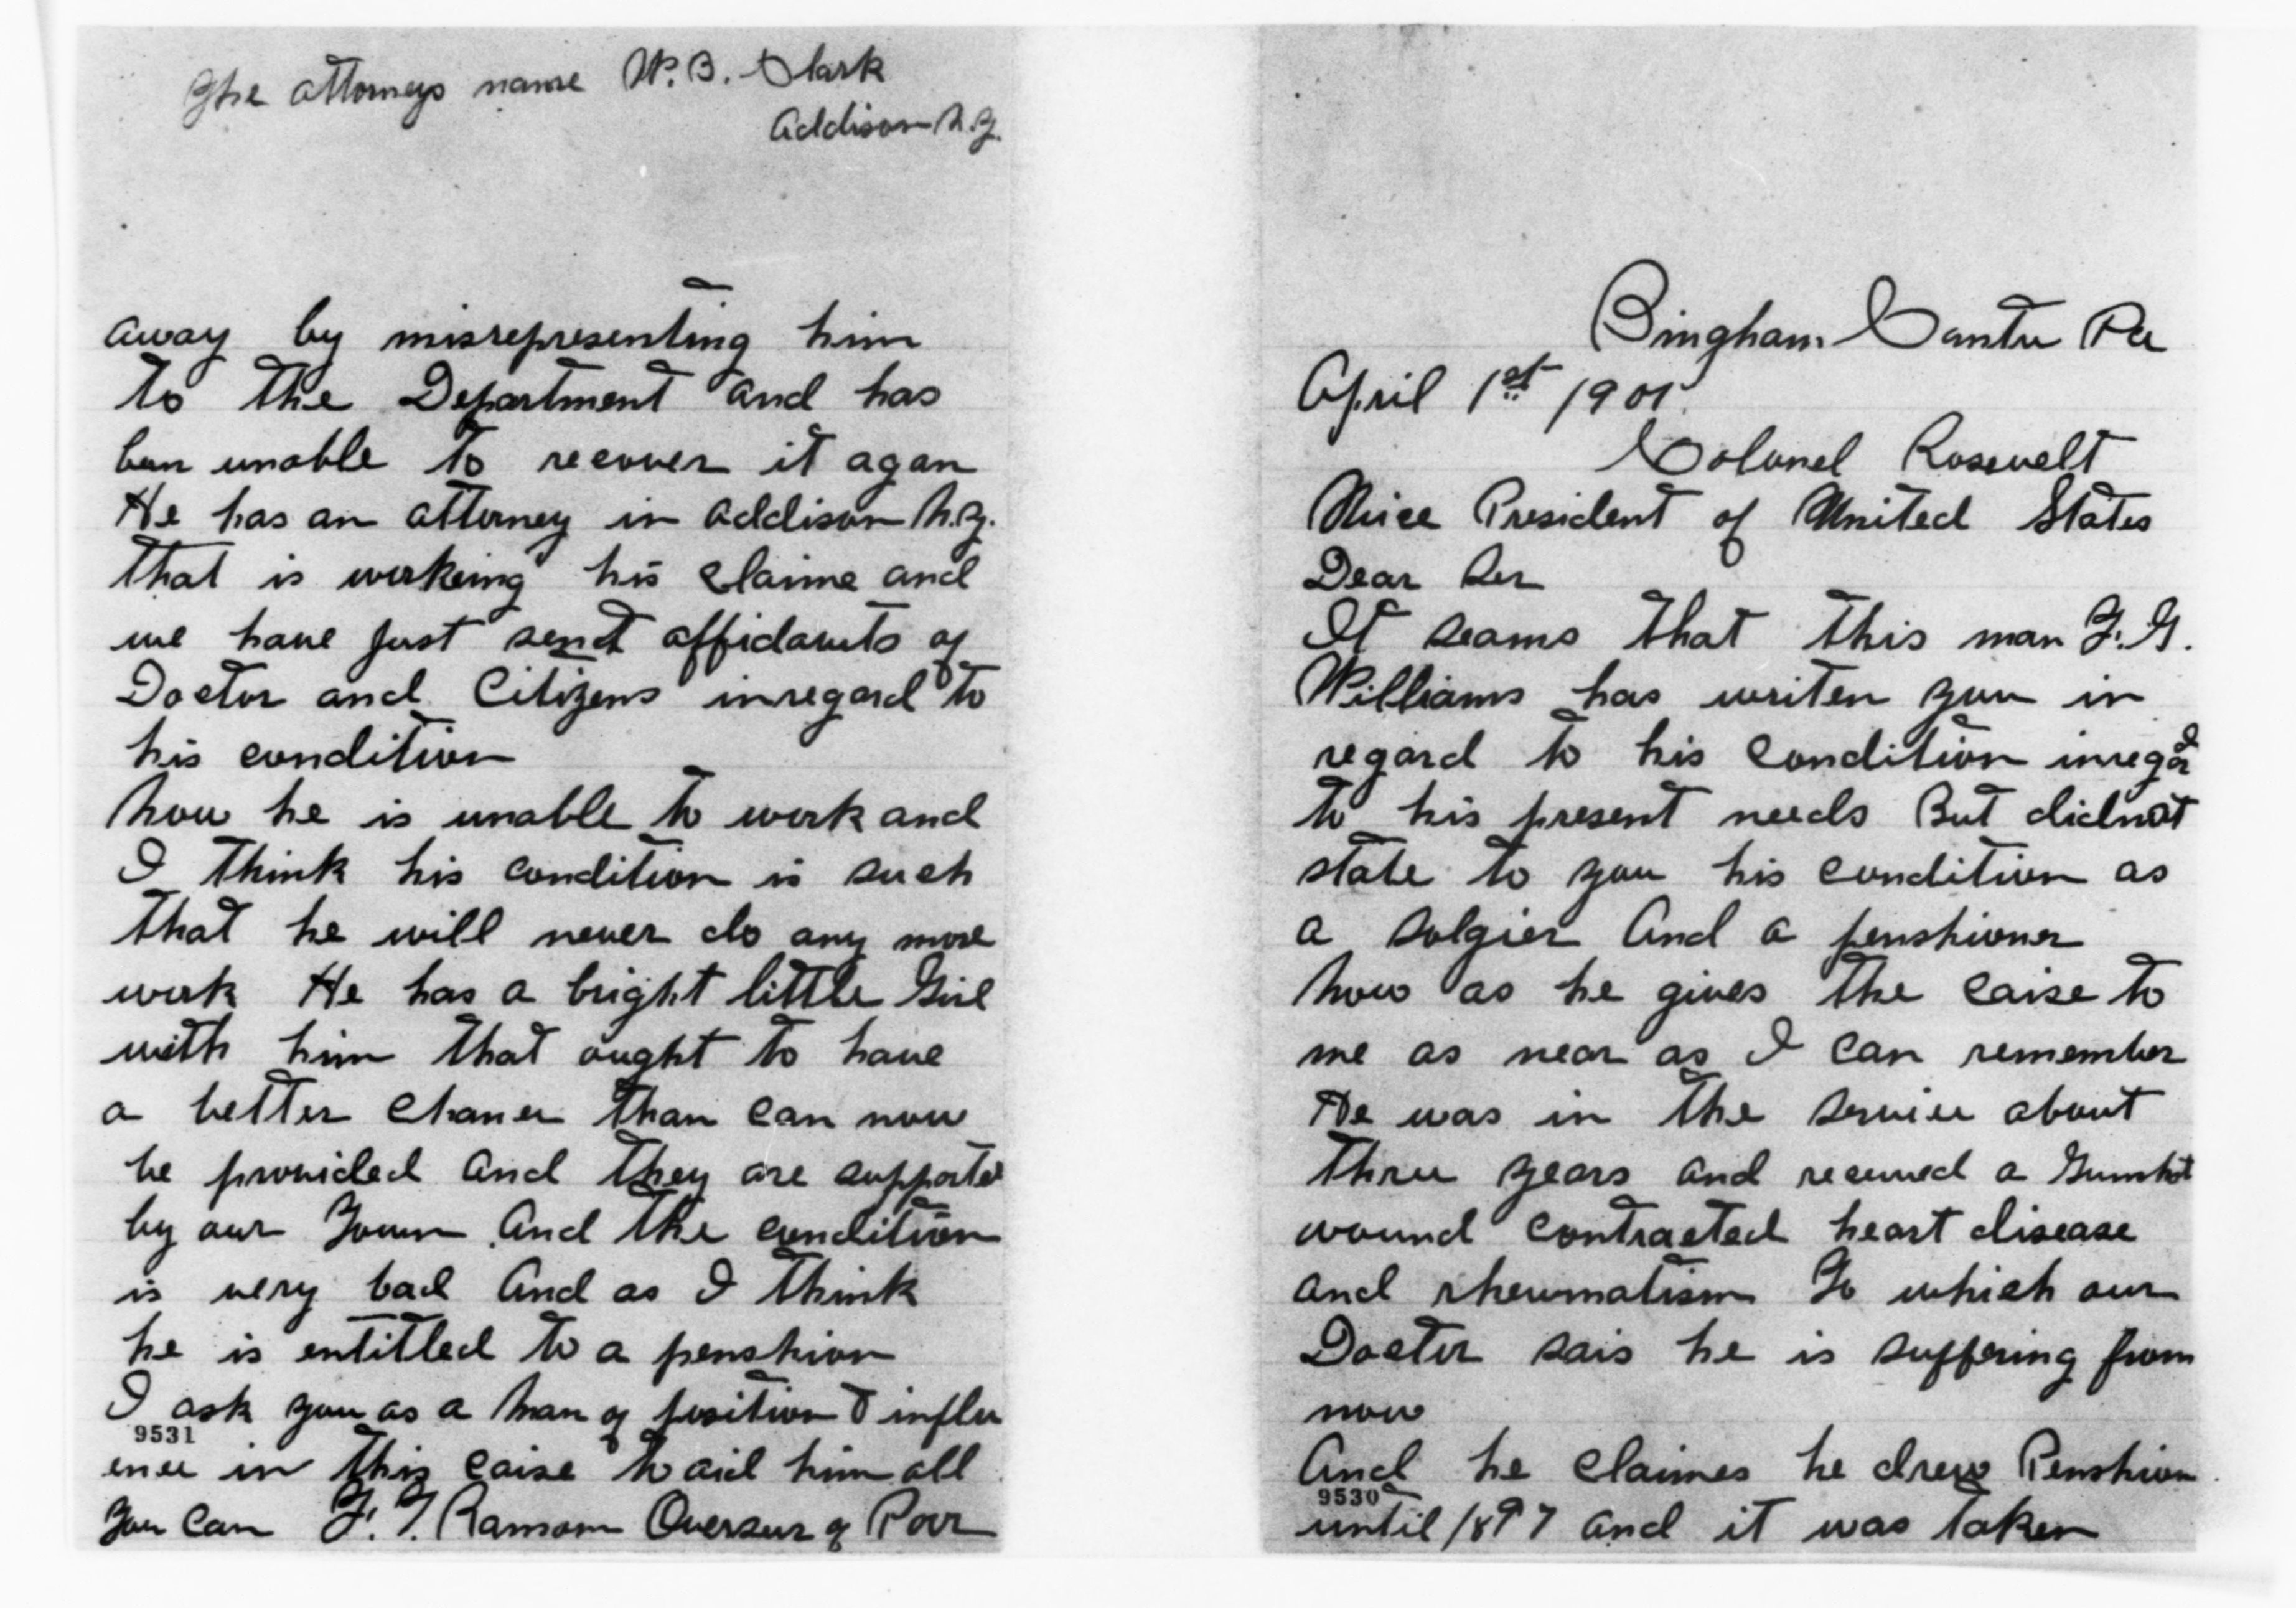 Bingham Centre Pa
April 1st 1901.
Colonel Rosevelt
Vice President of United States
Dear Ser
It seams that this man
Williams has writen you in
regard to his condition inregard
to his present needs But didnot
state to you his condition as
a solgier And a penshioner
Now as he gives the caise to
me as near as I can remember
He was in the service about
three years and received a Gunshot
wound contracted heart disease
and rheumatism To which our
Doctor sais he is suffering from
now
And he claimes he drew Penshion
9530
until 1897 and it was taken
The attorneys name W. B. Clark
Addison N.Y.
away by misrepresenting him
to the Department and has
ben unable to recover it agan
He has an attorney in Addison N.Y.
that is workeing his claime and
we have just send affidavits of
Doctor and Citizens inregard to
his condition
Now he is unable to work and
I think his condition is such
that he will never do any more
work He has a bright little Girl
with him that ought to have
a better chance than can now
be provided And they are supported
by our Town And the condition
is very bad And as I think
he is entitled to a penshion
I ask you as a man of position & influ
9531
ence in this caise to aid him all
you can F. T. Ransom Overseur of Poor